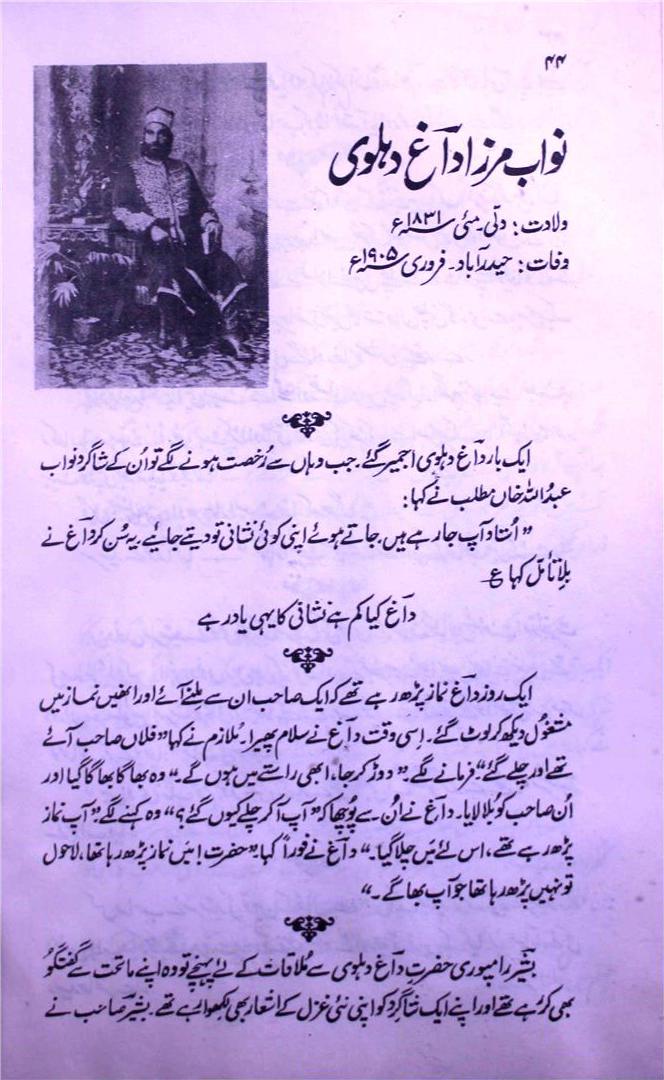 ۴۴
نواب مرزا داغ دہلوی
ولادت: دلّی۔ مئی ۱۸۳۱ء
وفات: حیدرآباد۔ فروری ۱۹۰۵ء
ایک بار داغ دہلوی اجمیر گئے۔ جب وہاں سے رُخصت ہونے لگے تو اُن کے شاگرد نواب
عبدُاللہ خاں مطلب نے کہا:
”اُستاد آپ جا رہے ہیں۔ جاتے ہوئے اپنی کوئی نشانی تو دیتے جائیے۔ یہ سُن کر داغ نے
بِلا تامّل کہا ع
داغ کیا کم ہے نشانی کا یہی یاد رہے
ایک روز داغ نماز پڑھ رہے تھے کہ ایک صاحب ان سے مِلنے آئے اور انھیں نماز میں
مشغول دیکھ کر لوٹ گئے۔ اسی وقت داغ نے سلام پھیرا۔ مُلازم نے کہا ”فلاں صاحب آئے
تھے اور چلے گئے“ فرمانے لگے۔ ”دوڑ کر جا، ابھی راستے میں ہوں گے۔“ وہ بھاگا بھاگا گیا اور
اُن صاحب کو بُلا لایا۔ داغ نے اُن سے پُوچھا کہ ”آپ آکر چلے کیوں گئے؟“ وہ کہنے لگے ”آپ نماز
پڑھ رہے تھے، اس لئے مَیں چلا گیا۔“ داغ نے فوراً کہا ”حضرت! میں نماز پڑھ رہا تھا، لاحول
تو نہیں پڑھ رہا تھا جو آپ بھاگے۔“
بشیر رامپوری حضرت داغ دہلوی سے مُلاقات کے لئے پہنچے تو وہ اپنے ماتحت سے گفتگو
بھی کر رہے تھے اور اپنے ایک شاگرد کو اپنی نئی غزل کے اشعار بھی لِکھوا رہے تھے۔ بشیر صاحب نے